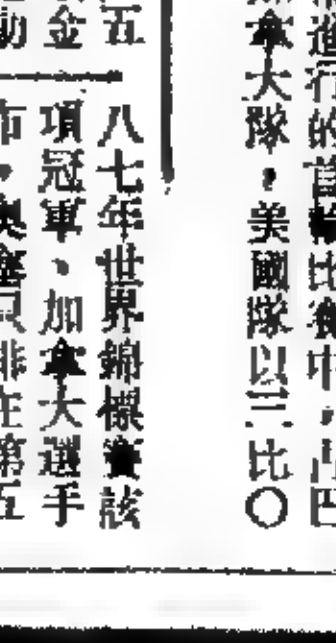 進行的首輪比賽中，古巴
拿大隊，美國隊以三比〇
五
金
八七年世界錦標賽該
項冠軍、加拿大選手
布・奧塞貝排在第五